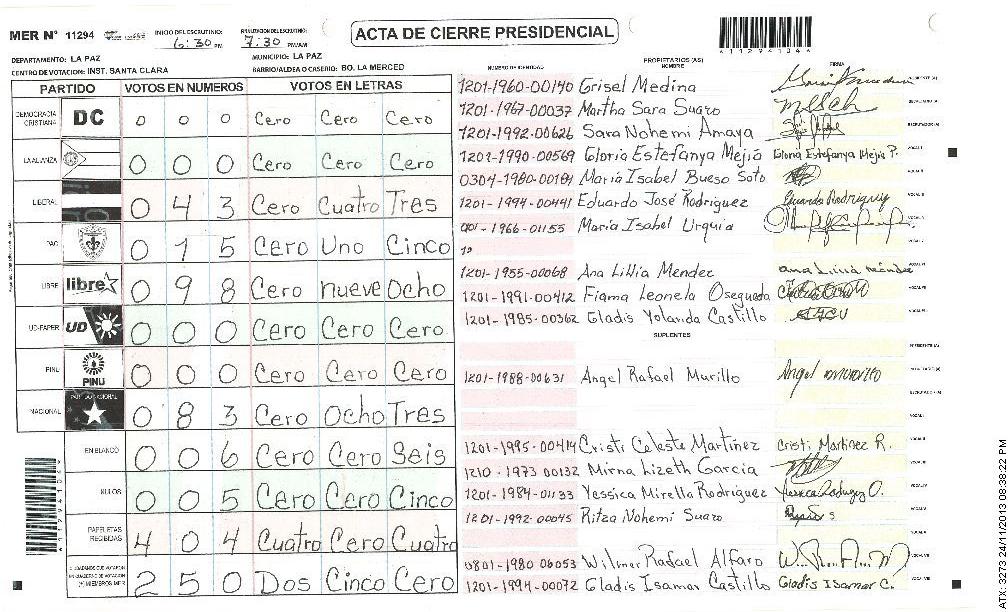 MER Nº 11294 INICIO DEL ESCRUTINIO: 6:30 PM FINALIZACION DEL ESCRUTINIO: 7:30 PM/AM
ACTA DE CIERRE PRESIDENCIAL
A11294104A
DEPARTAMENTO: LA PAZ MUNICIPIO: LA PAZ
CENTRO DE VOTACION: INST. SANTA CLARA BARRIO/ALDEA O CASERIO: BO. LA MERCED
PARTIDO VOTOS EN NUMEROS VOTOS EN LETRAS
DEMOCRACIA CRISTIANA DC 0 0 0 Cero Cero Cero
LA ALIANZA 0 0 0 Cero Cero Cero
LIBERAL 0 4 3 Cero Cuatro Tres
PAC 0 1 5 Cero Uno Cinco
LIBRE libre 0 9 8 Cero nueve Ocho
UD-FAPER UD 0 0 0 Cero Cero Cero
PINU PINU 0 0 0 Cero Cero Cero
NACIONAL PARTIDO NACIONAL 0 8 3 Cero Ocho Tres
EN BLANCO 0 0 6 Cero Cero Seis
NULOS 0 0 5 Cero Cero Cinco
PAPELETAS RECIBIDAS 4 0 4 Cuatro Cero Cuatro
2 5 0 Dos Cinco Cero
NUMERO DE IDENTIDAD PROPIETARIOS (AS) NOMBRE FIRMA
1201-1960-00140 Grisel Medina
1201-1967-00037 Martha Sara Suazo
1201-1992-00626 Sara Nohemi Amaya
1203-1990-00569 Gloria Estefanya Mejia Gloria Estefanya Mejia P.
0304-1980-00184 Maria Isabel Bueso Soto
1201-1994-00441 Eduardo José Rodriguez Eduardo Rodriguez
1966-01155 Maria Isabel Urquia
1201-1955-00068 Ana Lillia Mendez
1201-1991-00412 Fiama Leonela Osegueda
1201-1985-00362 Gladis Yolanda Castillo
SUPLENTES
1201-1988-00631 Angel Rafael Murillo Angel murillo
1201-1995-00414 Cristi Celeste Martinez Cristi Martinez R.
1210-1973 00132 Mirna Lizeth Garcia
1201-1984-01133 Yessica Mirella Rodriguez
1201-1992-00045 Ritza Nohemi Suazo
0801-1980 06053 Wilmer Rafael Alfaro
1201-1994-00072 Gladis Isamar Castillo Gladis Isamar C.
ATX-3273 24/11/2013 08:38:22 PM